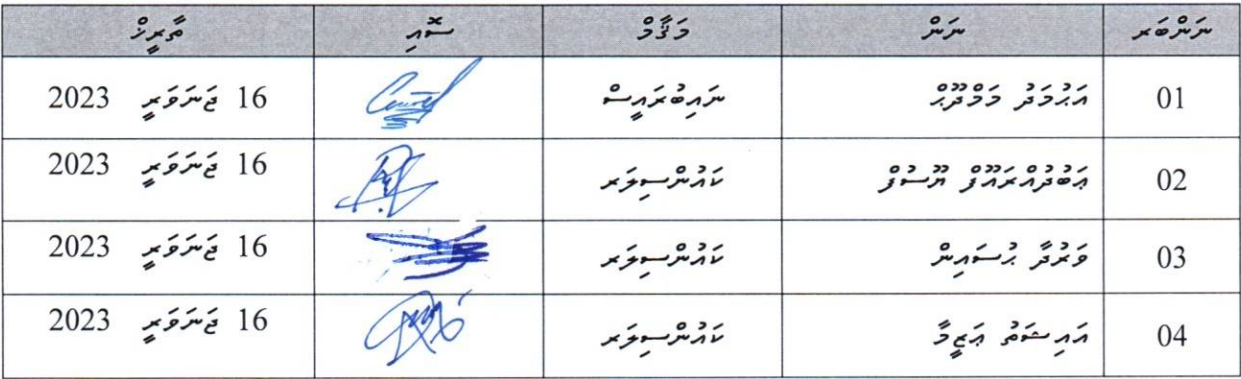 ނަންބަރ ނަން މަޤާމް ސޮއި ތާރީޚް
01 އަޙުމަދު މަމްދޫޙް ނައިބުރައީސް 16 ޖަނަވަރީ 2023
02 ޢަބުދުއްރައޫފް ޔޫސުފް ކައުންސިލަރ 16 ޖަނަވަރީ 2023
03 ވަރުދާ ޙުސައިން ކައުންސިލަރ 16 ޖަނަވަރީ 2023
04 އައިޝަތު ޢަޒީމާ ކައުންސިލަރ 16 ޖަނަވަރީ 2023